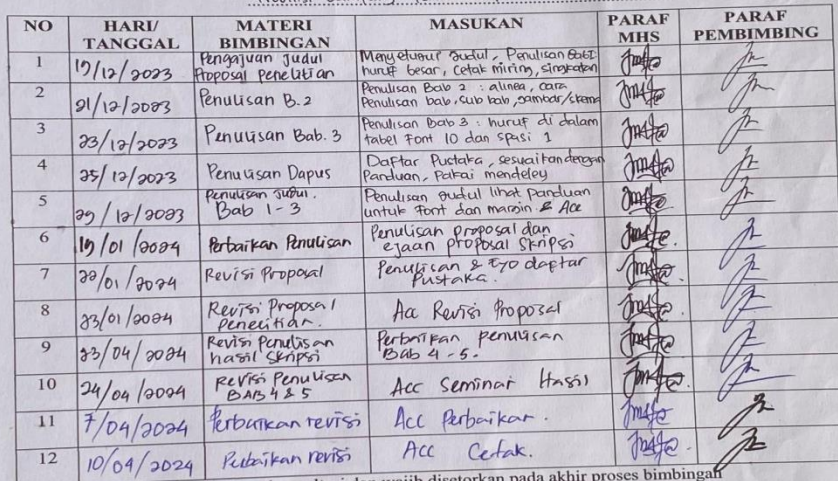 NO HARI/ TANGGAL MATERI BIMBINGAN MASUKAN PARAF MHS PARAF PEMBIMBING
1 19/12/2023 Pengajuan Judul Proposal penelitian Menyetujui Judul, Penulisan Bab I huruf besar, Cetak miring, singkatan
2 21/12/2023 Penulisan B.2 Penulisan Bab 2 : alinea, cara Penulisan bab, sub bab, gambar/skema
3 23/12/2023 Penulisan Bab. 3 Penulisan Bab 3 : huruf di dalam tabel Font 10 dan spasi 1
4 25/12/2023 Penulisan Dapus Daftar Pustaka, sesuaikan dengan Panduan, Pakai mendeley
5 29/12/2023 Penulisan Judul. Bab 1-3 Penulisan Judul lihat panduan untuk Font dan margin & Acc
6 19/01/2024 Perbaikan Penulisan Penulisan proposal dan ejaan proposal skripsi
7 22/01/2024 Revisi Proposal Penulisan & daftar Pustaka.
8 23/01/2024 Revisi Proposal Penelitian. Acc Revisi Proposal
9 23/04/2024 Revisi Penulisan hasil Skripsi Perbaikan penulisan Bab 4-5.
10 24/04/2024 Revisi Penulisan BAB 4 & 5 Acc Seminar Hasil
11 7/04/2024 Perbaikan revisi Acc Perbaikan.
12 10/04/2024 Perbaikan revisi Acc Cetak.
dan wajib disetorkan pada akhir proses bimbingan